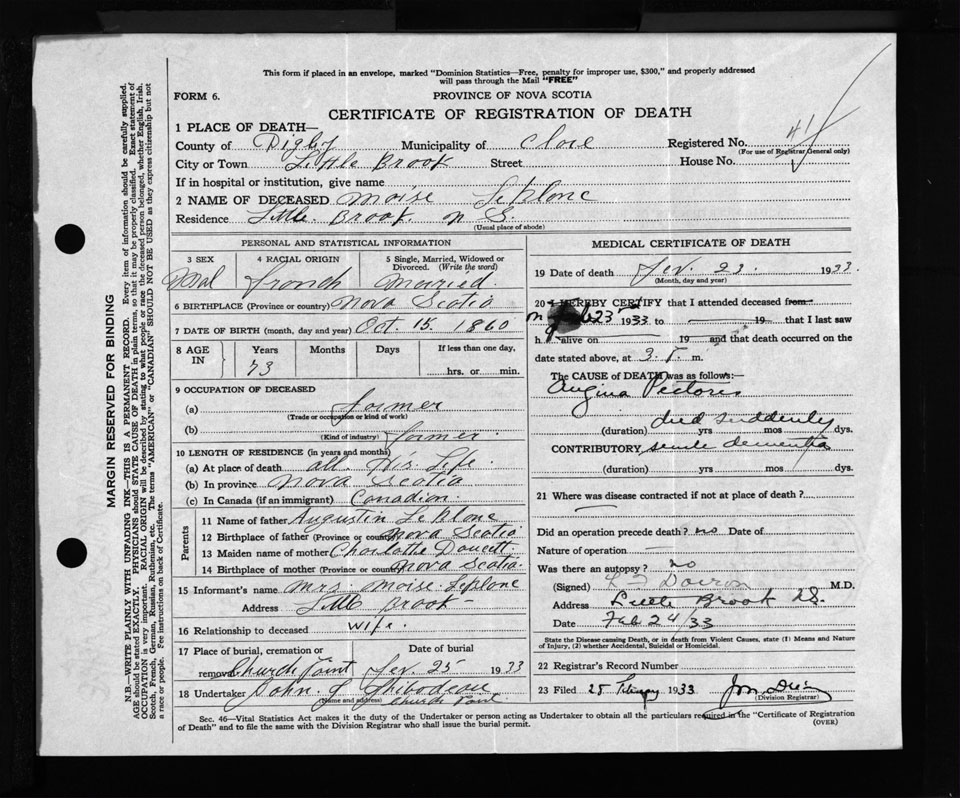 This form if placed in an envelope, marked "Dominion Statistics—Free, penalty for improper use, $300," and properly addressed
will pass through the Mail "FREE"
FORM 6.
PROVINCE OF NOVA SCOTIA
CERTIFICATE OF REGISTRATION OF DEATH
1 PLACE OF DEATH—
County of Digby Municipality of Clare Registered No.
(For use of Registrar General only)
City or Town Little Brook Street House No.
If in hospital or institution, give name
2 NAME OF DECEASED Moise Leplone
Residence Little Brook N S.
(Usual place of abode)
PERSONAL AND STATISTICAL INFORMATION
3 SEX 4 RACIAL ORIGIN 5 Single, Married, Widowed or Divorced. (Write the word)
French Married.
6 BIRTHPLACE (Province or country) Nova Scotia
7 DATE OF BIRTH (month, day and year) Oct. 15. 1860
8 AGE IN Years Months Days If less than one day,
73 hrs. or min.
9 OCCUPATION OF DECEASED
(a) farmer
(Trade or occupation or kind of work)
(b) farmer.
(Kind of industry)
10 LENGTH OF RESIDENCE (in years and months)
(a) At place of death all His Life
(b) In province Nova Scotia
(c) In Canada (if an immigrant) Canadian.
Parents
11 Name of father Augustin Leplone
12 Birthplace of father (Province or country) Nova Scotia
13 Maiden name of mother Charlotte Doucett
14 Birthplace of mother (Province or country) Nova Scotia.
15 Informant's name Mrs. Moise Leplone
Address Little Brook
16 Relationship to deceased wife.
17 Place of burial, cremation or removal Church Point Date of burial Fev. 25 1933
18 Undertaker John. J Thibodeau
Name and address Church Point
MEDICAL CERTIFICATE OF DEATH
19 Date of death Fev. 23. 1933
(Month, day and year)
20 I HEREBY CERTIFY that I attended deceased from
on Feb 23 1933 to 19 that I last saw
h alive on 19 and that death occurred on the
date stated above, at 3. P. m.
The CAUSE of DEATH was as follows:—
Angina Pectoris
died suddenly
(duration) yrs mos dys.
CONTRIBUTORY senile dementia
(duration) yrs mos dys.
21 Where was disease contracted if not at place of death?
Did an operation precede death? no Date of
Nature of operation
Was there an autopsy? no
(Signed) Doiron M.D.
Address Little Brook NS.
Date Feb 24/33
State the Disease causing Death, or in death from Violent Causes, state (1) Means and Nature
of Injury, (2) whether Accidental, Suicidal or Homicidal.
22 Registrar's Record Number
23 Filed 25 February 1933
(Division Registrar)
Sec. 46—Vital Statistics Act makes it the duty of the Undertaker or person acting as Undertaker to obtain all the particulars required in the "Certificate of Registration
of Death" and to file the same with the Division Registrar who shall issue the burial permit.
(OVER)
MARGIN RESERVED FOR BINDING
N.B.—WRITE PLAINLY WITH UNFADING INK—THIS IS A PERMANENT RECORD. Every item of information should be carefully supplied.
AGE should be stated EXACTLY. PHYSICIANS should STATE CAUSE OF DEATH in plain terms, so that it may be properly classified. Exact statement of
OCCUPATION is very important. RACIAL ORIGIN will be described by stating to what people or race the deceased person belonged, whether English, Irish,
Scotch, French, German, Russian, Ruthenian, etc. The terms "AMERICAN" or "CANADIAN" SHOULD NOT BE USED as they express citizenship but not
a race or people. Fee instructions on back of Certificate.